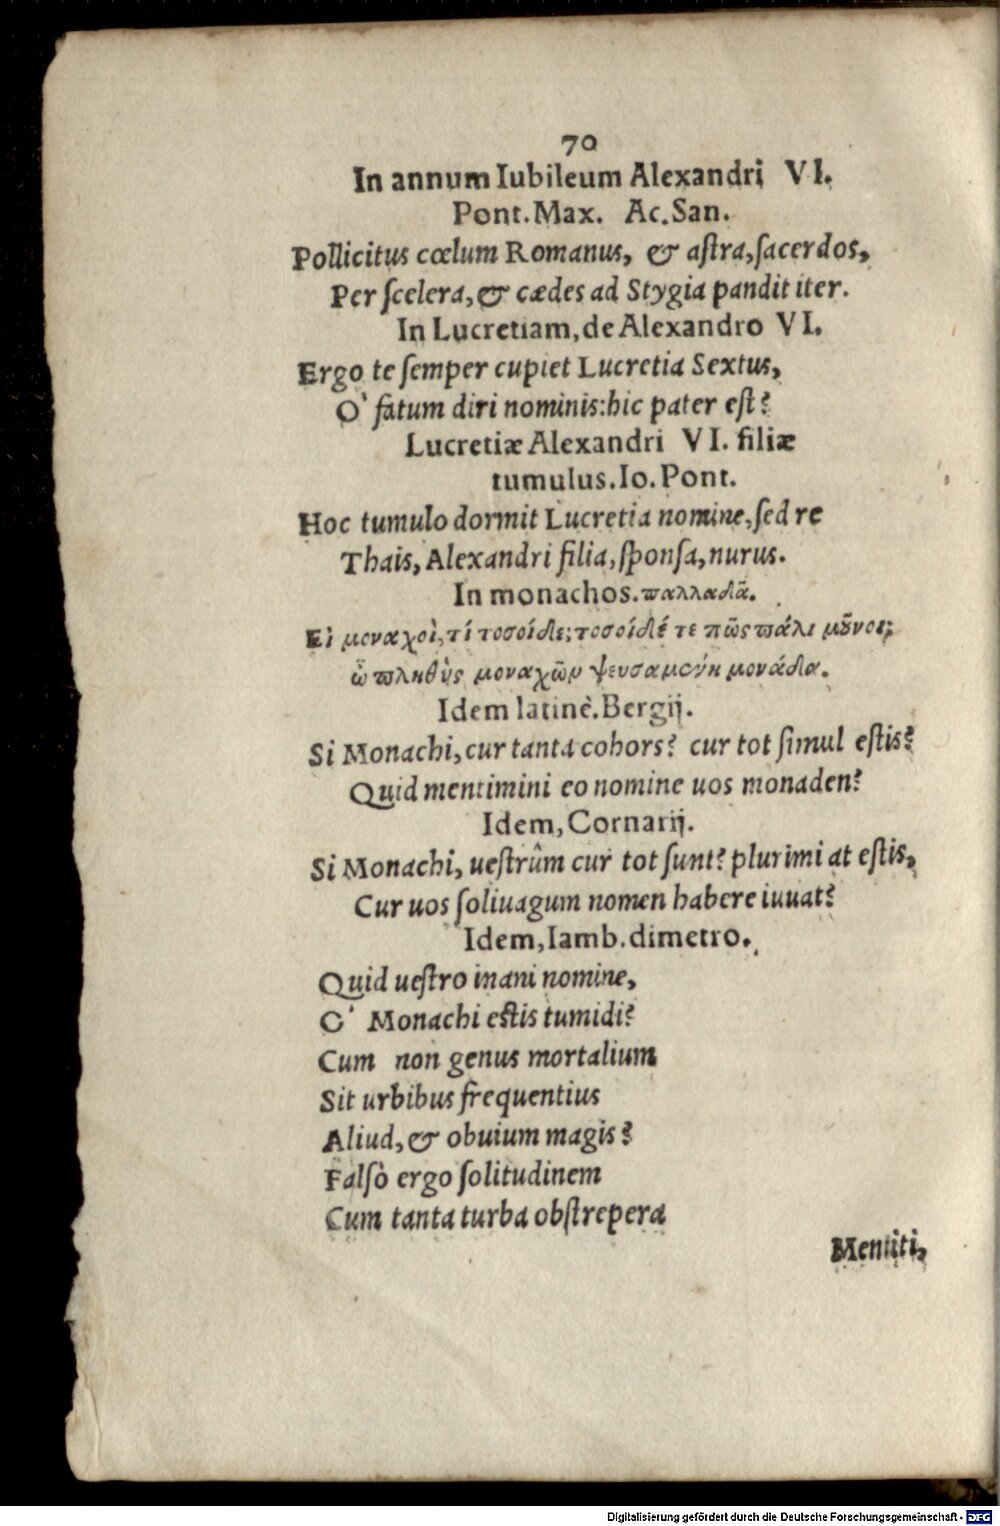 70
In annum Iubileum Alexandri VI.
Pont. Max. Ac. San.
Pollicitus cœlum Romanus, & aſtra, ſacerdos,
Per ſcelera, & cædes ad Stygia pandit iter.
In Lucretiam, de Alexandro VI.
Ergo te ſemper cupiet Lucretia Sextus,
O` fatum diri nominis: hic pater eſt?
Lucretiæ Alexandri VI. filiæ
tumulus. Io. Pont.
Hoc tumulo dormit Lucretia nomine, ſed re
Thais, Alexandri filia, ſponſa, nurus.
In monachos. παλλαδᾶ.
Εἰ μοναχοὶ, τί τοσοίδε; τοσοίδέ τε πῶς πάλι μοῦνοι;
ὦ πληθὺς μοναχῶν ψευσαμένη μονάδα.
Idem latinè. Bergij.
Si Monachi, cur tanta cohors? cur tot ſimul eſtis?
Quid mentimini eo nomine uos monaden?
Idem, Cornarij.
Si Monachi, ueſtrûm cur tot ſunt? plurimi at eſtis,
Cur uos ſoliuagum nomen habere iuuat?
Idem, Iamb. dimetro.
Quid ueſtro inani nomine,
O` Monachi eſtis tumidi?
Cum non genus mortalium
Sit urbibus frequentius
Aliud, & obuium magis?
Falſò ergo ſolitudinem
Cum tanta turba obſtrepera
Mentiti,
Digitalisierung gefördert durch die Deutsche Forschungsgemeinschaft - DFG